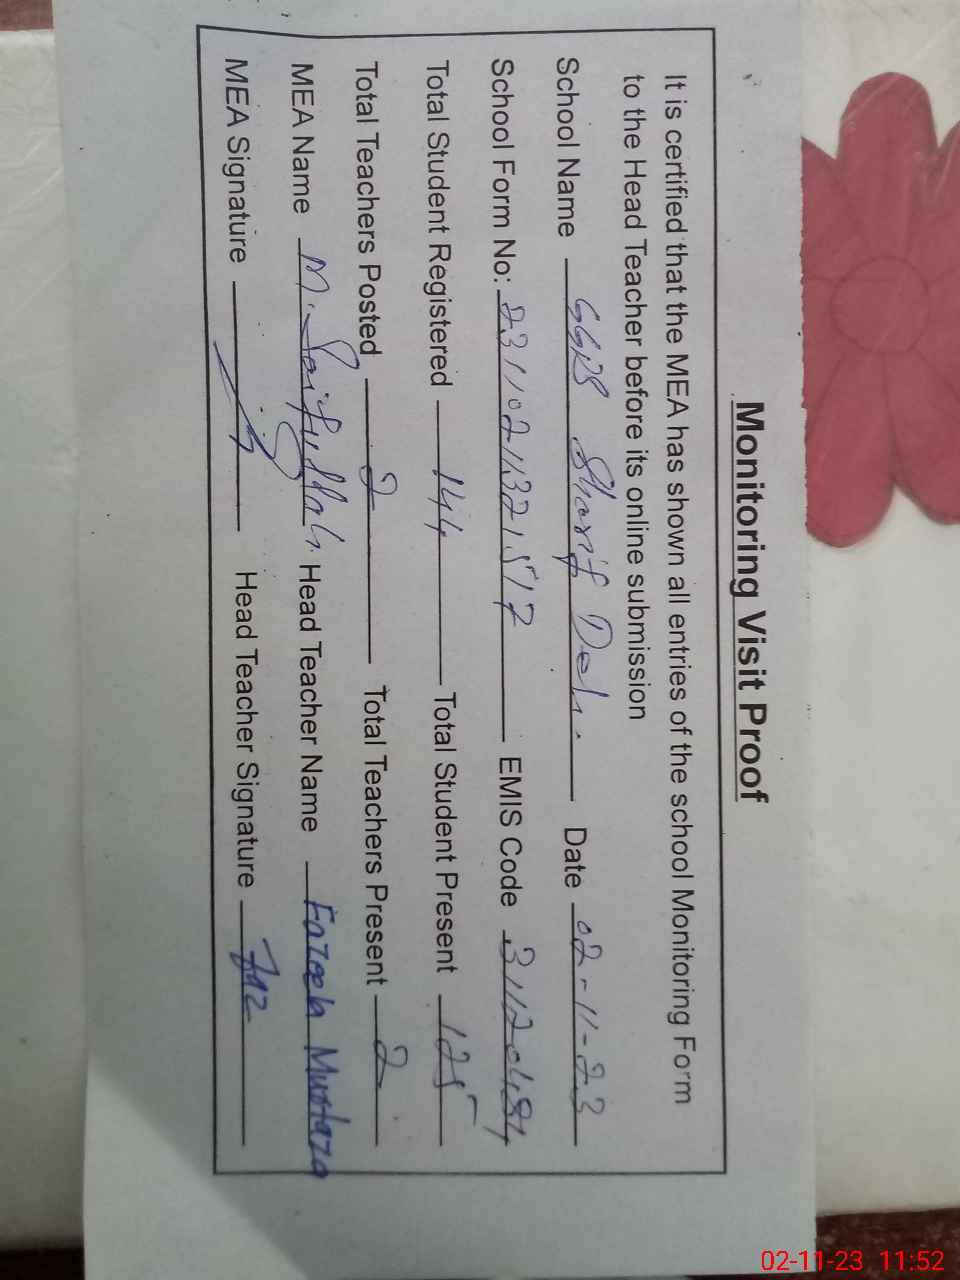 Monitoring Visit Proof
It is certified that the MEA has shown all entries of the school Monitoring Form
to the Head Teacher before its online submission
School Name GGPS Sharif Deh. Date 02-11-23
School Form No: EMIS Code
Total Student Registered 144 Total Student Present 125
Total Teachers Posted 2 Total Teachers Present 2
MEA Name M. Saifullah. Head Teacher Name Fazeela Murtaza
MEA Signature Head Teacher Signature
02-11-23 11:52